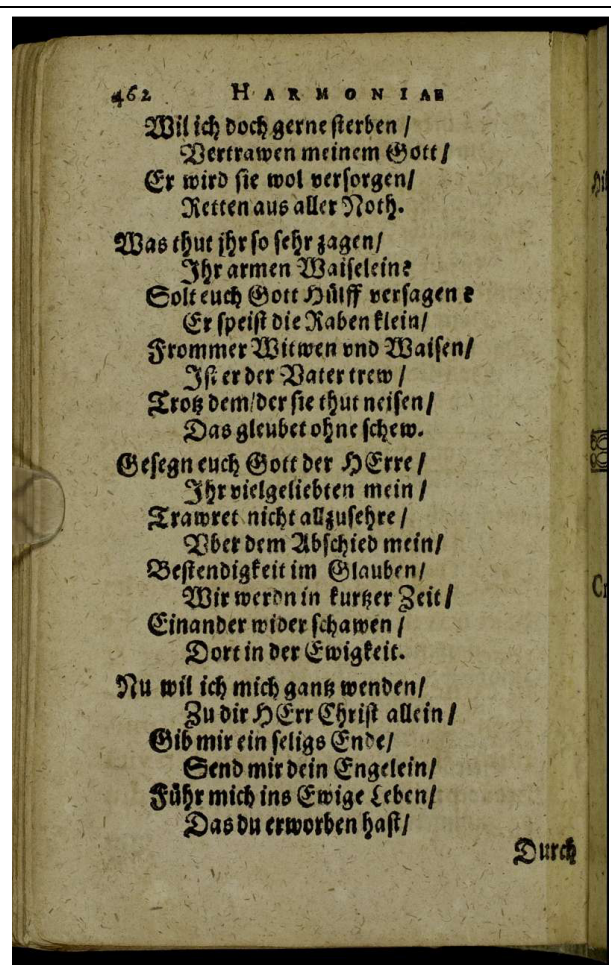 462 HARMONIAE
Wil ich doch gerne sterben /
Vertrawen meinem Gott /
Er wird sie wol versorgen /
Retten aus aller Noth.
Was thut jhr so sehr zagen /
Ihr armen Waiselein?
Solt euch Gott Hülff versagen?
Er speist die Raben klein /
Frommer Witwen vnd Waisen /
Ist er der Vater trew /
Trotz dem / der sie thut neisen /
Das gleubet ohne schew.
Gesegn euch Gott der HErre /
Ihr vielgeliebten mein /
Trawret nicht allzusehre /
Vber dem Abschied mein /
Bestendigkeit im Glauben /
Wir werdn in kurtzer Zeit /
Einander wider schawen /
Dort in der Ewigkeit.
Nu wil ich mich gantz wenden /
Zu dir HErr Christ allein /
Gib mir ein seligs Ende /
Send mir dein Engelein /
Führ mich ins Ewige Leben /
Das du erworben hast /
Durch